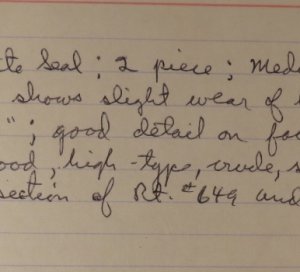 te Seal; 2 piece; Meda
shows slight wear of
"; good detail on fac
ood, high-type, crude, s
section of Rt. #649 and